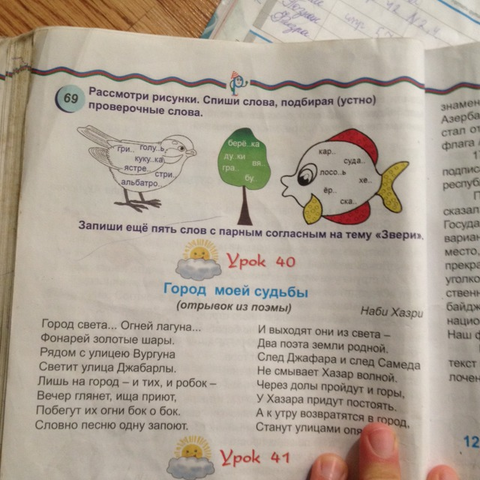 69
Рассмотри рисунки. Спиши слова, подбирая (устно)
проверочные слова.
гри.. голу..ь
куку..ка
ястре.. стри..
альбатро..
берё..ка
ду..ки вя..
гра..
бу..
кар..
суда..
лосо..ь
хе..
ёр..
ска..
Запиши ещё пять слов с парным согласным на тему «Звери».
Урок 40
Город моей судьбы
(отрывок из поэмы)
Наби Хазри
Город света... Огней лагуна...
Фонарей золотые шары.
Рядом с улицею Вургуна
Светит улица Джабарлы.
Лишь на город – и тих, и робок –
Вечер глянет, ища приют,
Побегут их огни бок о бок.
Словно песню одну запоют.
И выходят они из света –
Два поэта земли родной.
След Джафара и след Самеда
Не смывает Хазар волной.
Через долы пройдут и горы,
У Хазара придут постоять.
А к утру возвратятся в город,
Станут улицами
Урок 41
знамен
Азерба
стал от
флага
подписа
респуб
сказал
Госуда
вариан
место,
прекра
уголко
ственн
байдж
национ
Наш ф
текст
лочен
12